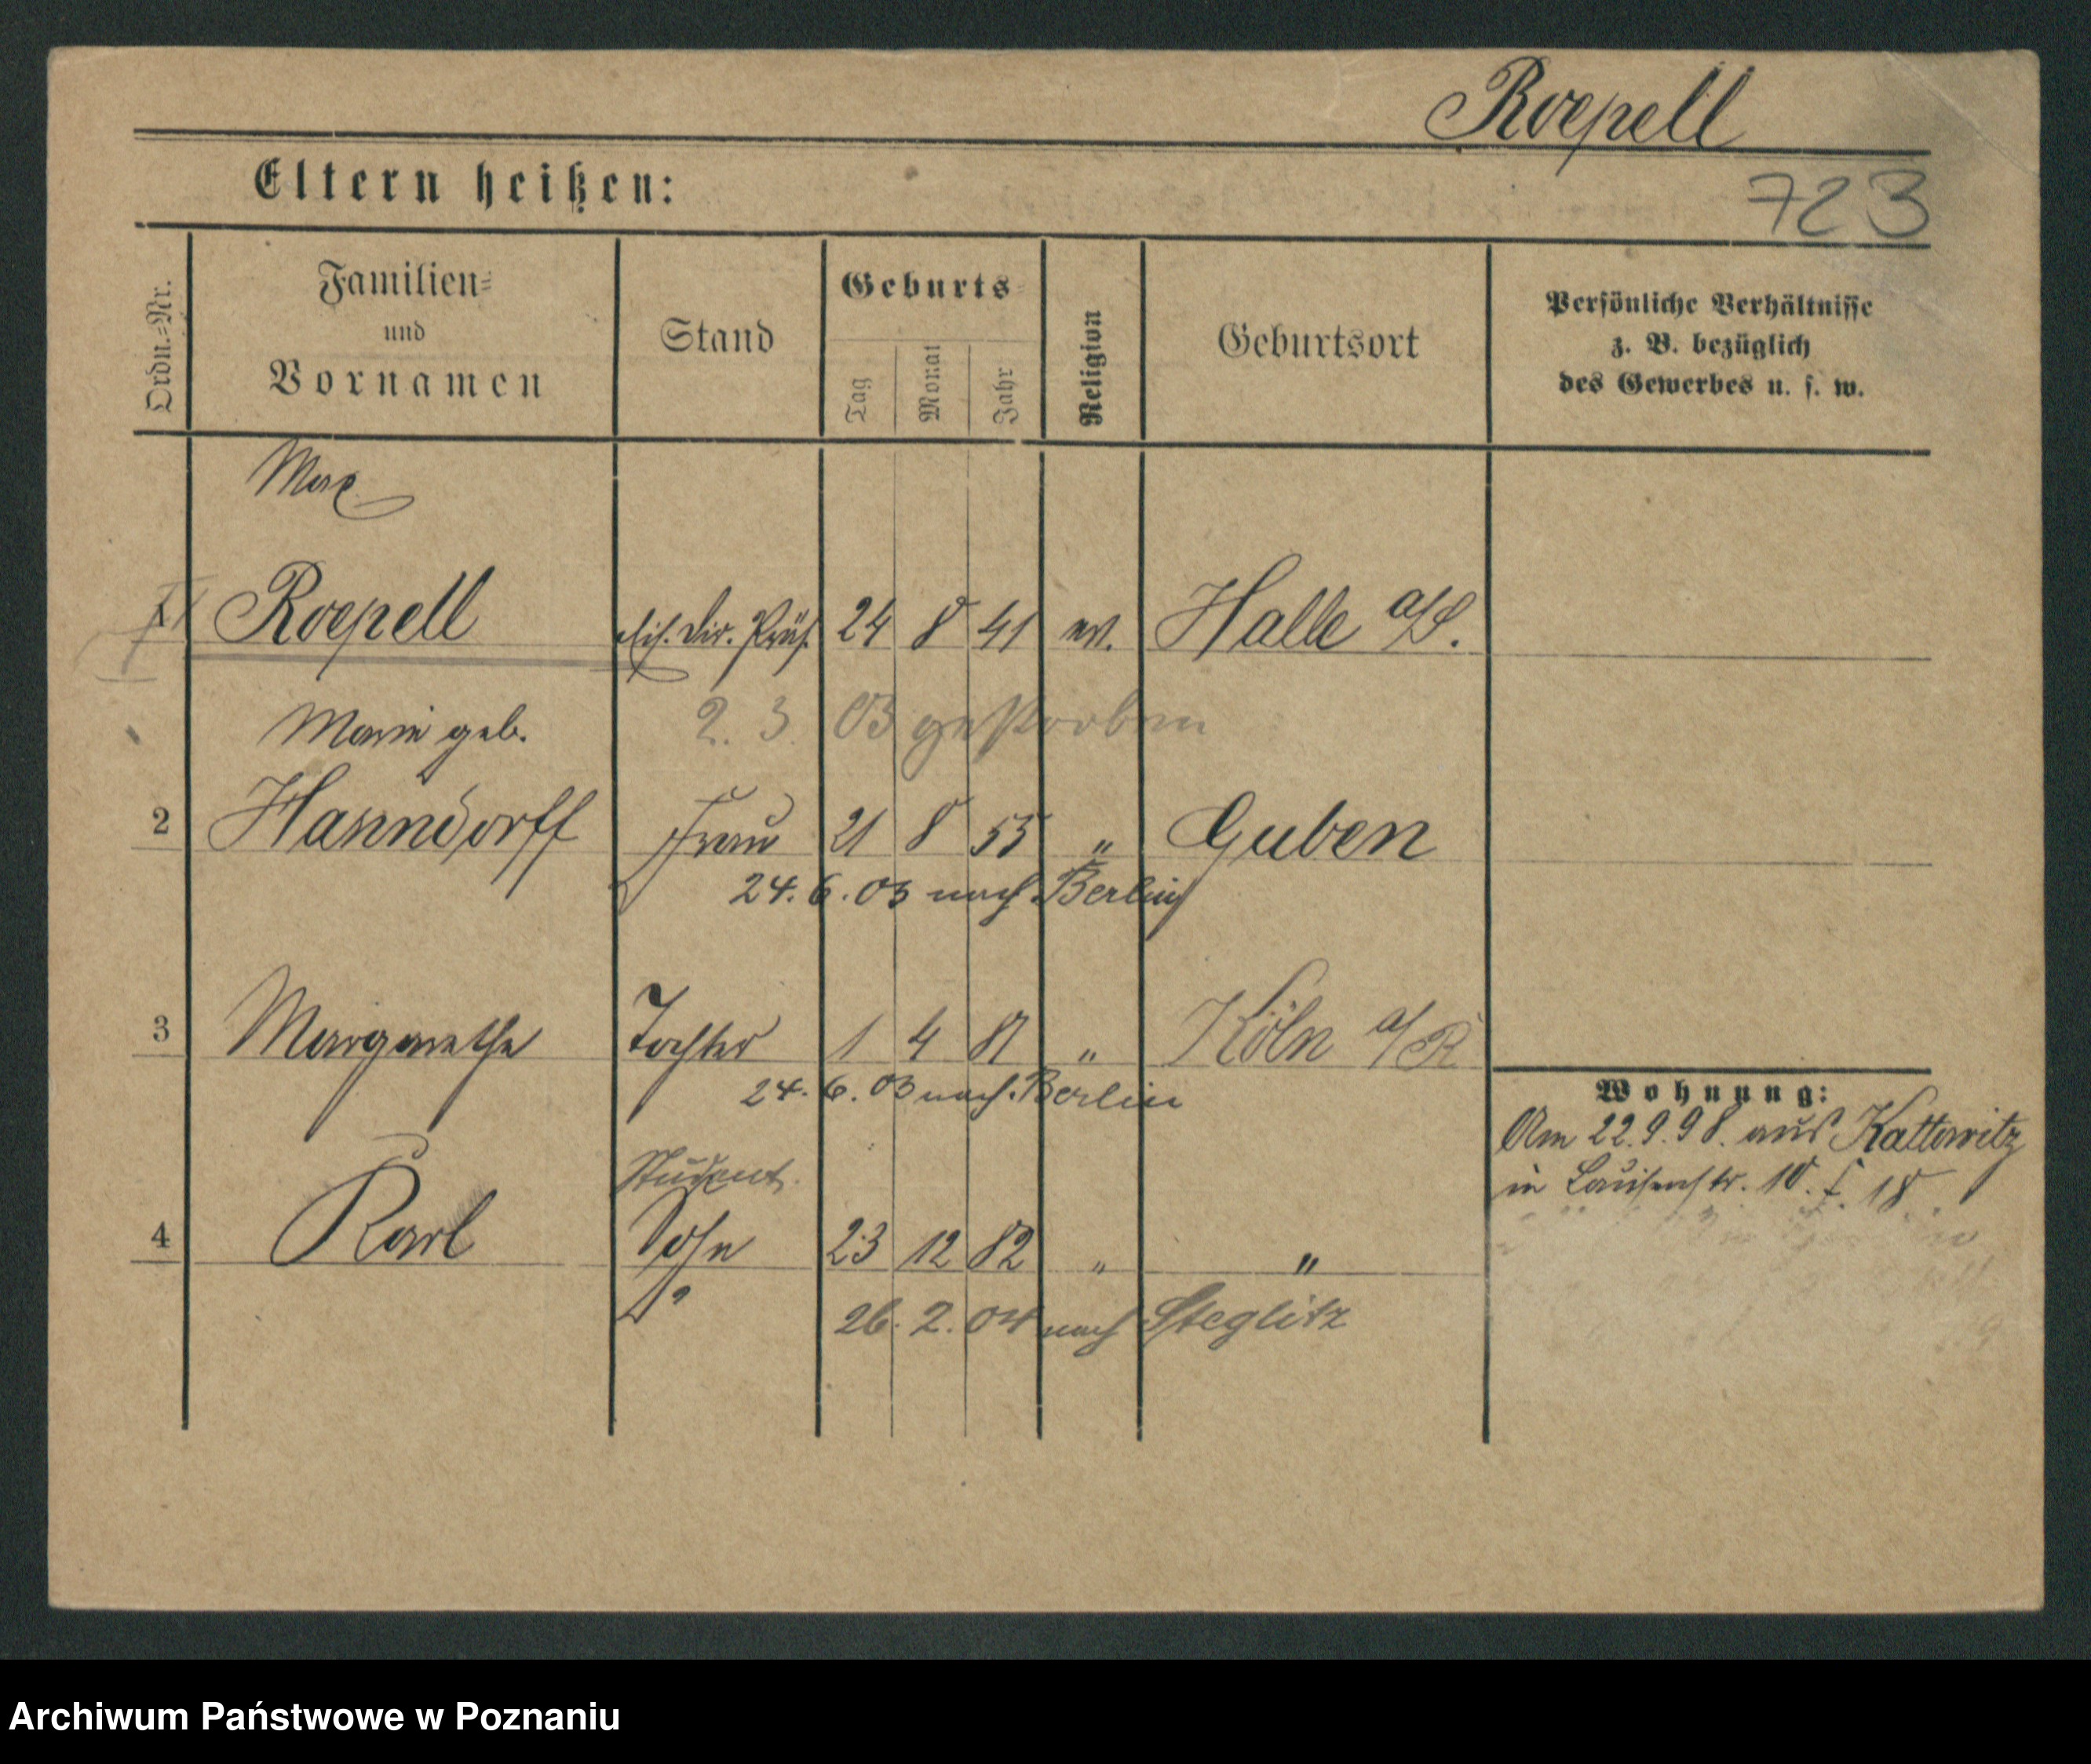 Roepell
723
Eltern heißen:
Ordn.-Nr.
Familien-
und
Vornamen
Stand
Geburts-
Tag
Monat
Jahr
Religion
Geburtsort
Persönliche Verhältnisse
z. B. bezüglich
des Gewerbes u. s. w.
Max
Roepell Eis. Dir. Präs. 24 8 41 ev. Halle a/S.
2. 3. 03 gestorben
Marie geb.
2 Hanndorff Frau 21 8 55 " Guben
24. 6. 03 nach Berlin
3 Margarethe Tochter 1 4 81 " Köln a/R
24. 6. 03 nach Berlin
Student
4 Karl Sohn 23 12 82 " "
26. 2. 04 nach Steglitz
Wohnung:
Am 22.9.98. aus Kattowitz
in Louisenstr. 10. 18
Archiwum Państwowe w Poznaniu